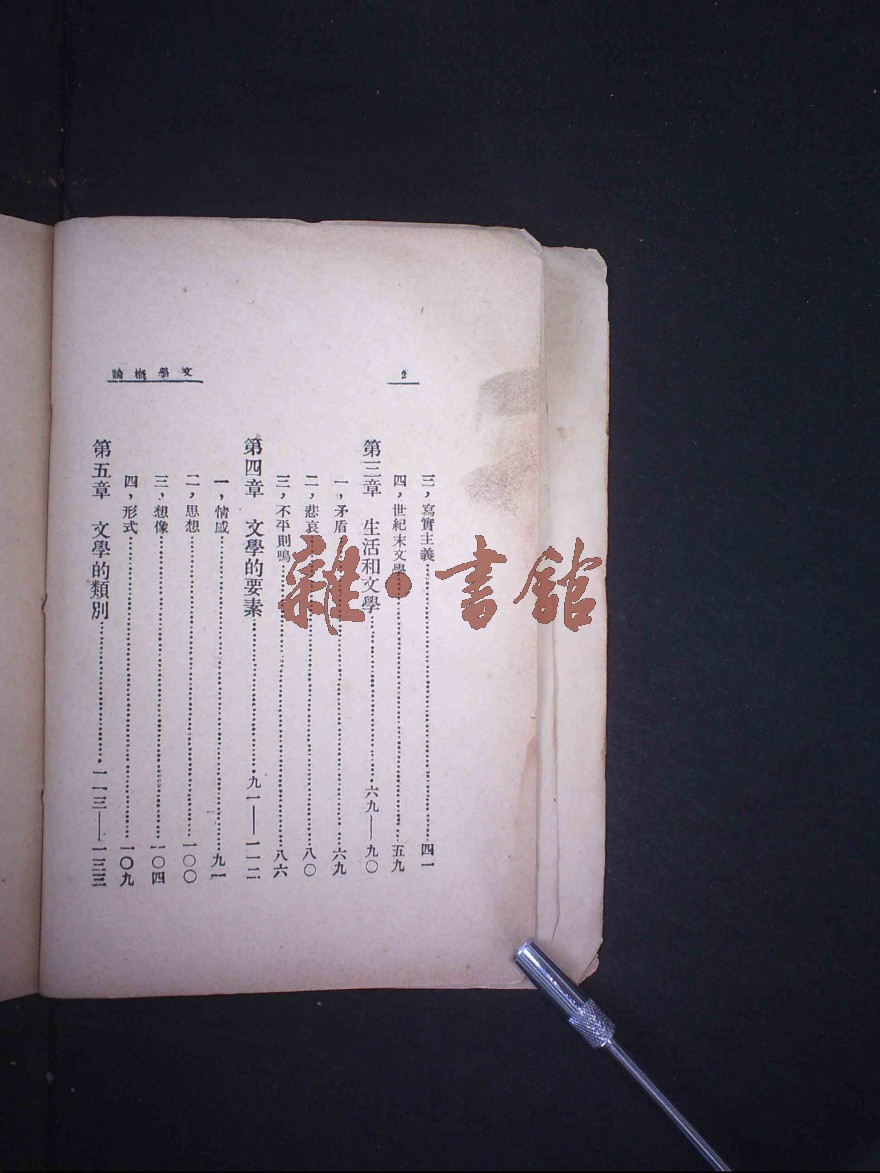 文學概論
2
三，寫實主義……四一
四，世紀末文學……五九
第三章　生活和文學……六九—九〇
一，矛盾……六九
二，悲哀……八〇
三，不平則鳴……八六
第四章　文學的要素……九一—一一二
一，情感……九一
二，思想……一〇〇
三，想像……一〇四
四，形式……一〇九
第五章　文學的類別……一一三—一三三
雜·書館